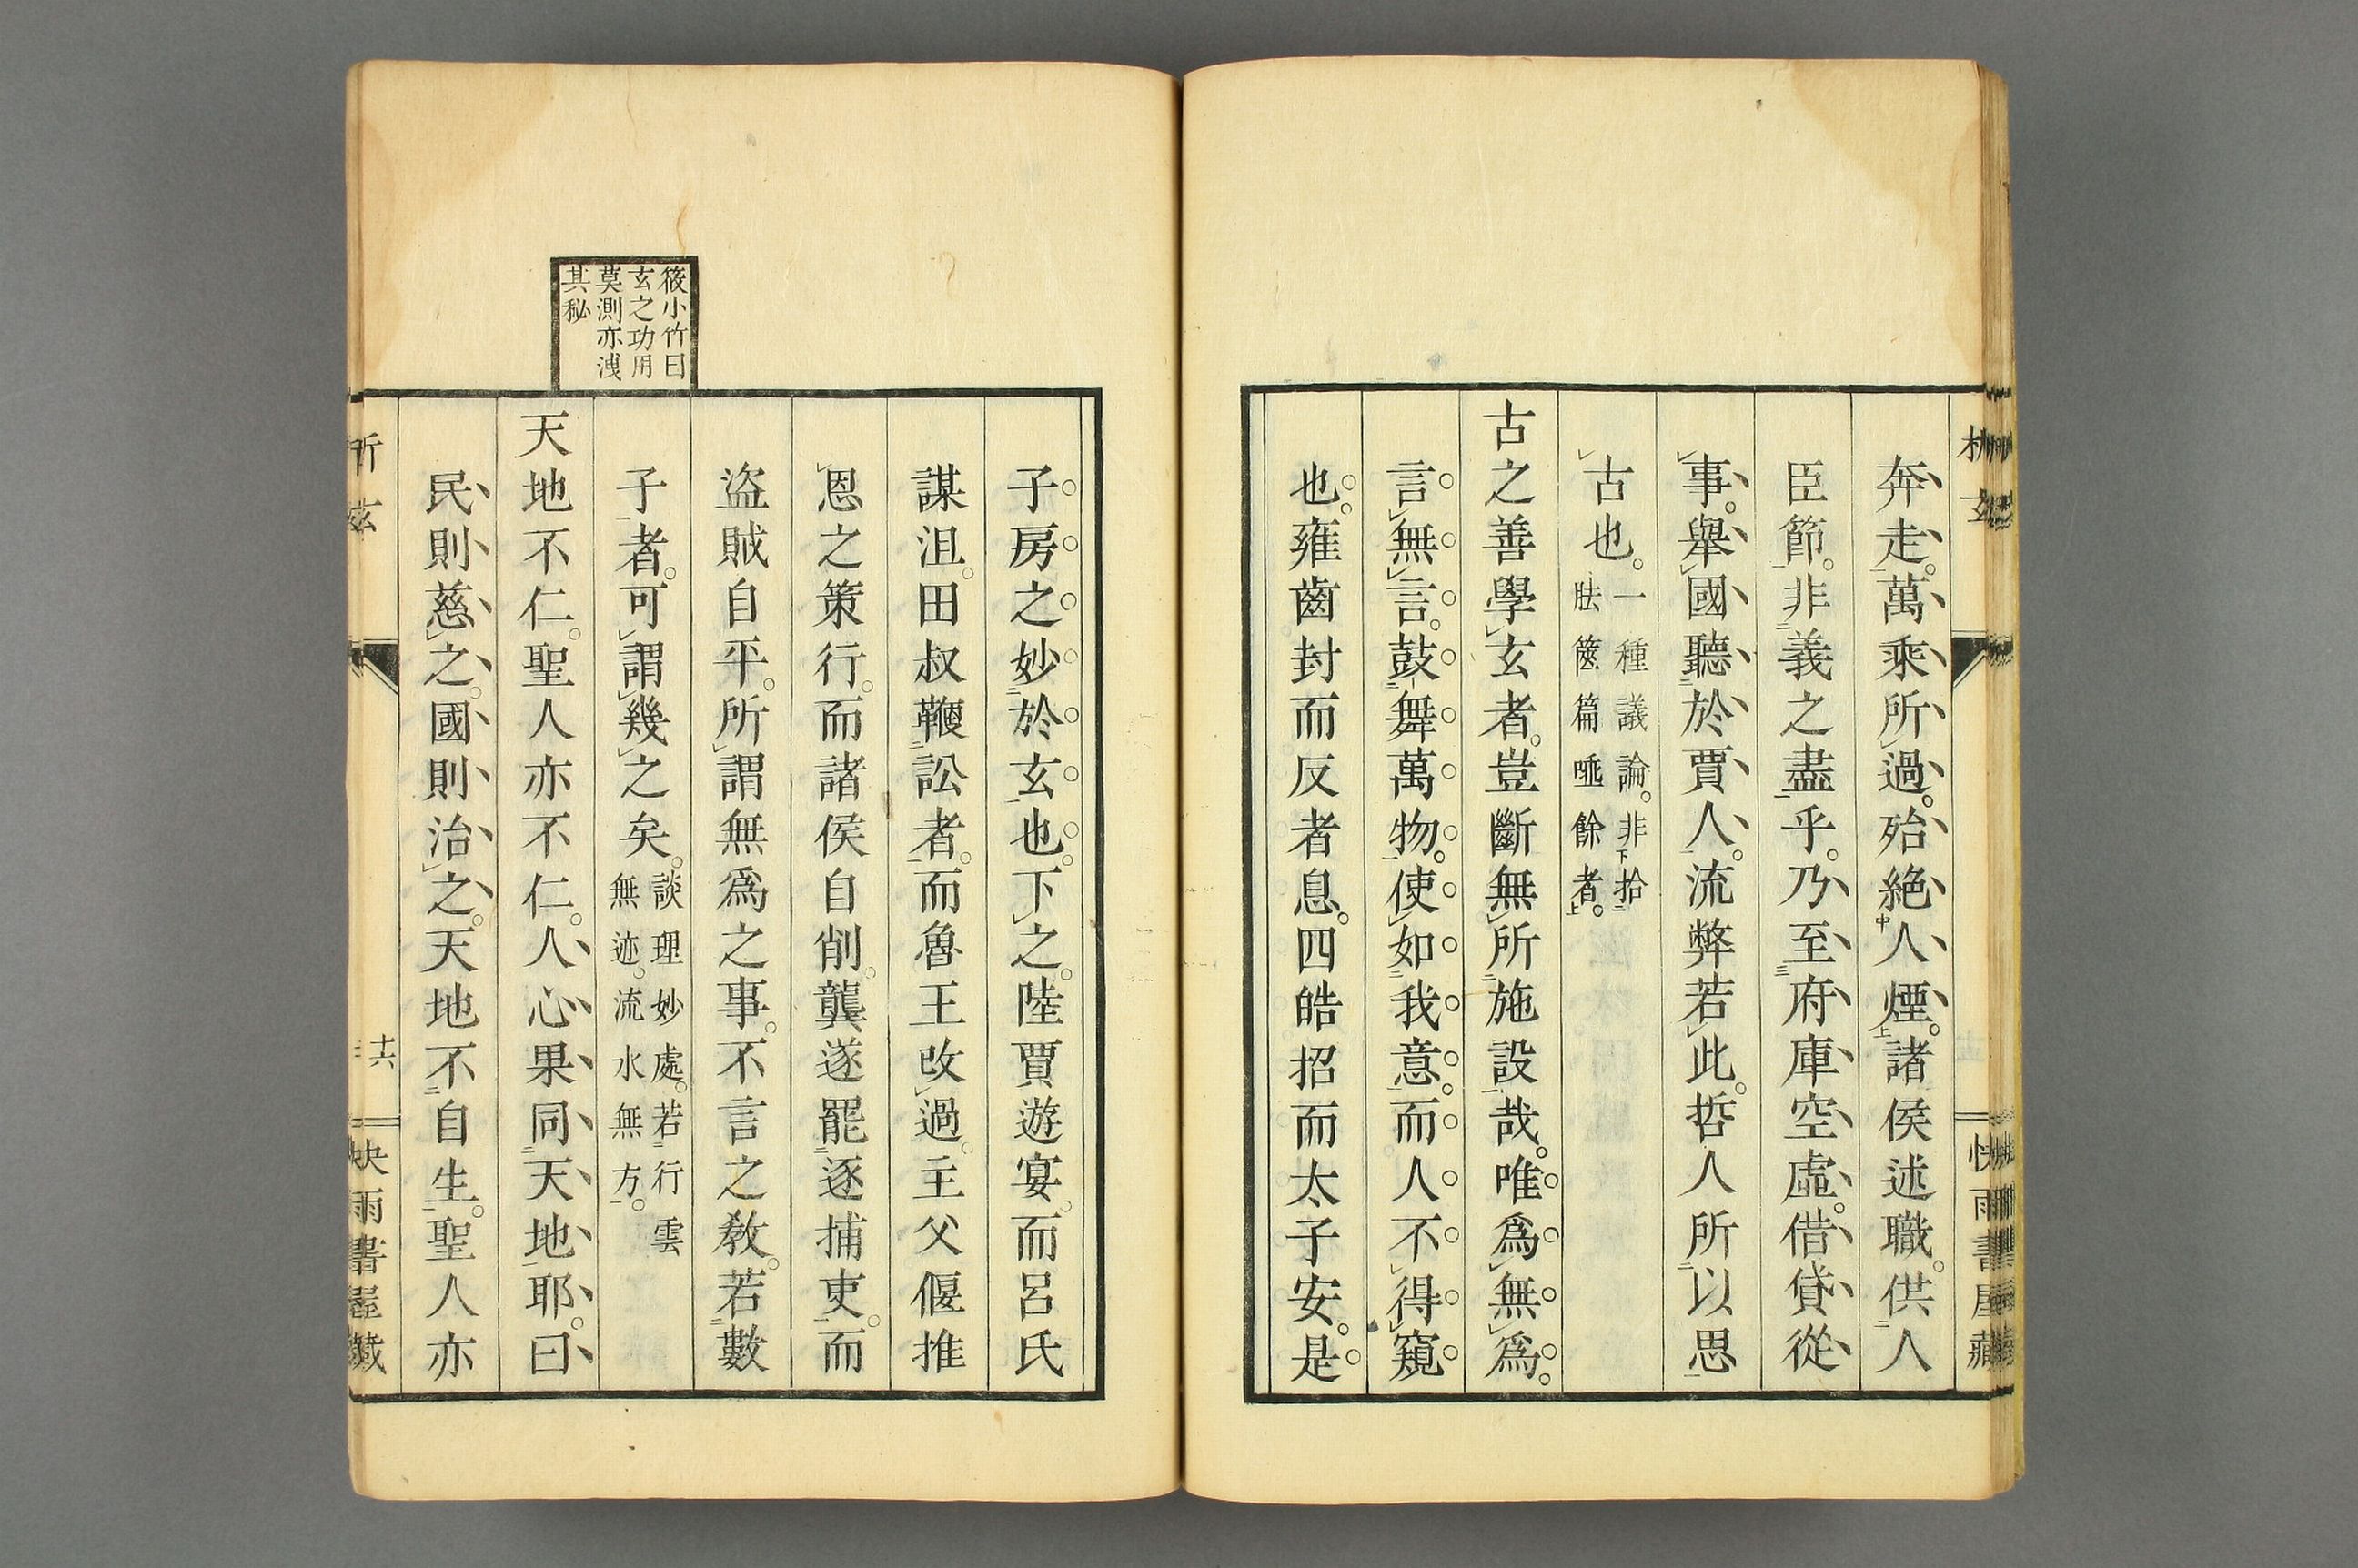 奔走。萬乘所過。殆絶人煙。諸侯述職。供人
臣節。非義之盡乎。乃至府庫空虛。借貸從
事。舉國聽於賈人。流弊若此。哲人所以思
古也。一種議論。非拾
胠篋篇唾餘者。
古之善學玄者。豈斷無所施設哉。唯爲無爲。
言無言。鼓舞萬物。使如我意。而人不得窺
也。雍齒封而反者息。四皓招而太子安。是
子房之妙於玄也。下之。陸賈遊宴。而呂氏
謀沮。田叔鞭訟者。而魯王改過。主父偃推
恩之策行。而諸侯自削。龔遂罷逐捕吏。而
盜賊自平。所謂無爲之事。不言之教。若數
子者。可謂幾之矣。談理妙處。若行雲
無迹。流水無方。
天地不仁。聖人亦不仁。人心果同天地耶。曰
民則慈之。國則治之。天地不自生。聖人亦
筱小竹曰
玄之功用
莫測亦洩
其秘
十六
快雨書屋藏